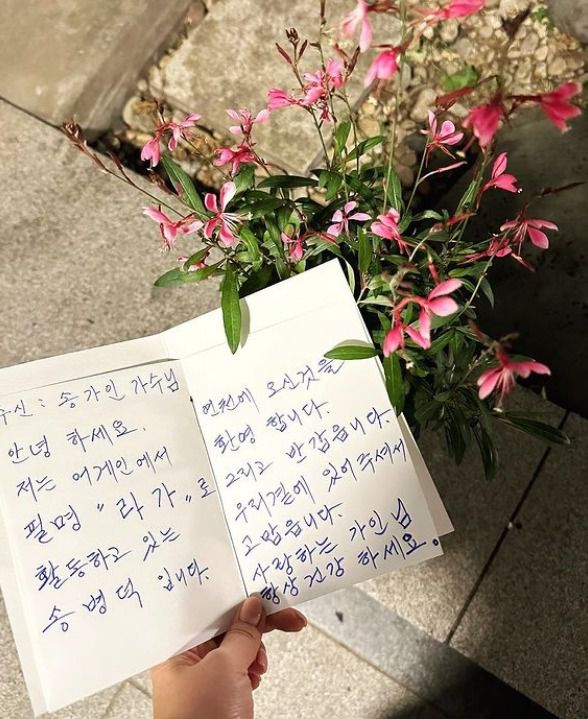 수신 : 송가인 가수님
안녕 하세요.
저는 어게인에서
필명 "라가"로
활동하고 있는
송병덕 입니다.
인천에 오신것을
환영 합니다.
그리고 반갑습니다.
우리곁에 있어주셔서
고맙습니다.
사랑하는 가인님
항상건강 하세요.